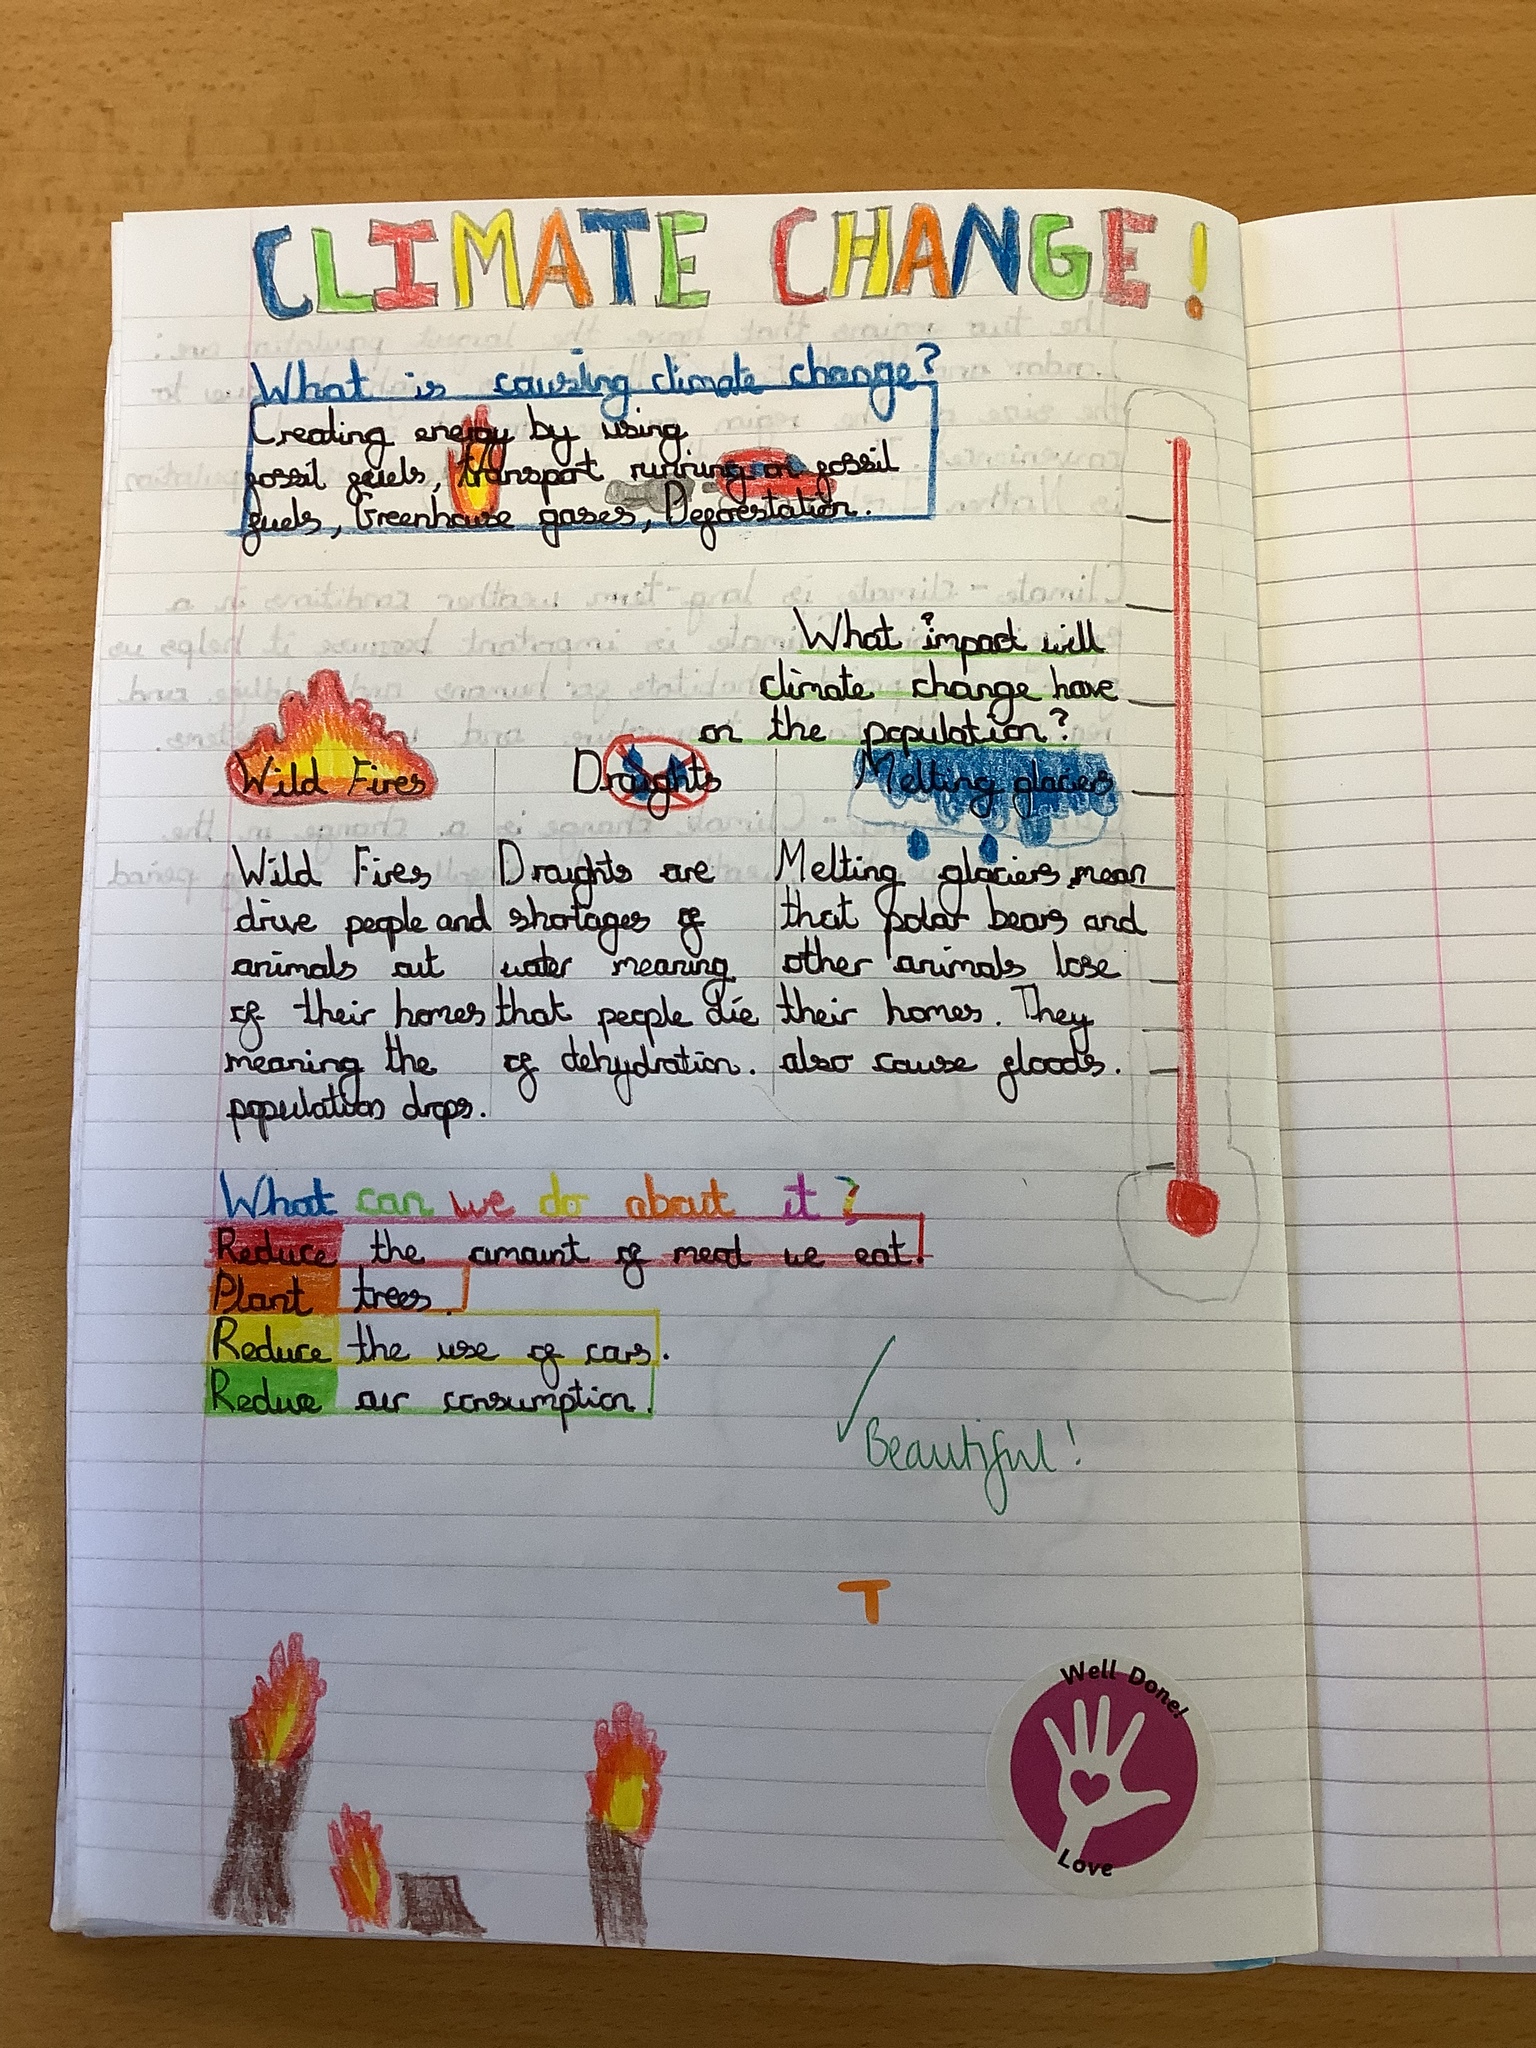 CLIMATE CHANGE!
What is causing climate change?
Creating energy by using
fossil fuels, transport running on fossil
fuels, Greenhouse gases, Deforestation.
What impact will
climate change have
on the population?
Wild Fires
Wild Fires
drive people and
animals out
of their homes
meaning the
population drops.
Draughts
Draughts are
shortages of
water meaning
that people die
of dehydration.
Melting glaciers
Melting glaciers mean
that polar bears and
other animals lose
their homes. They
also cause floods.
What can we do about it?
Reduce the amount of meat we eat.
Plant trees.
Reduce the use of cars.
Reduce air consumption.
Beautiful!
T
Well Done!
Love